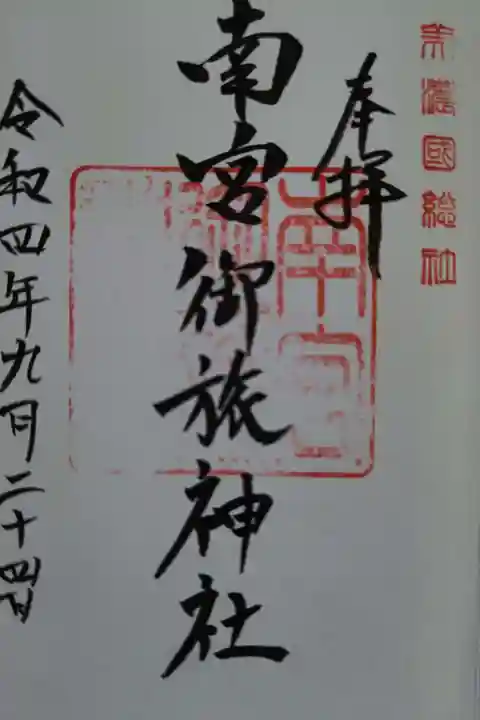 美濃國総社
奉拝
南宮御旅神社
令和四年九月二十四日